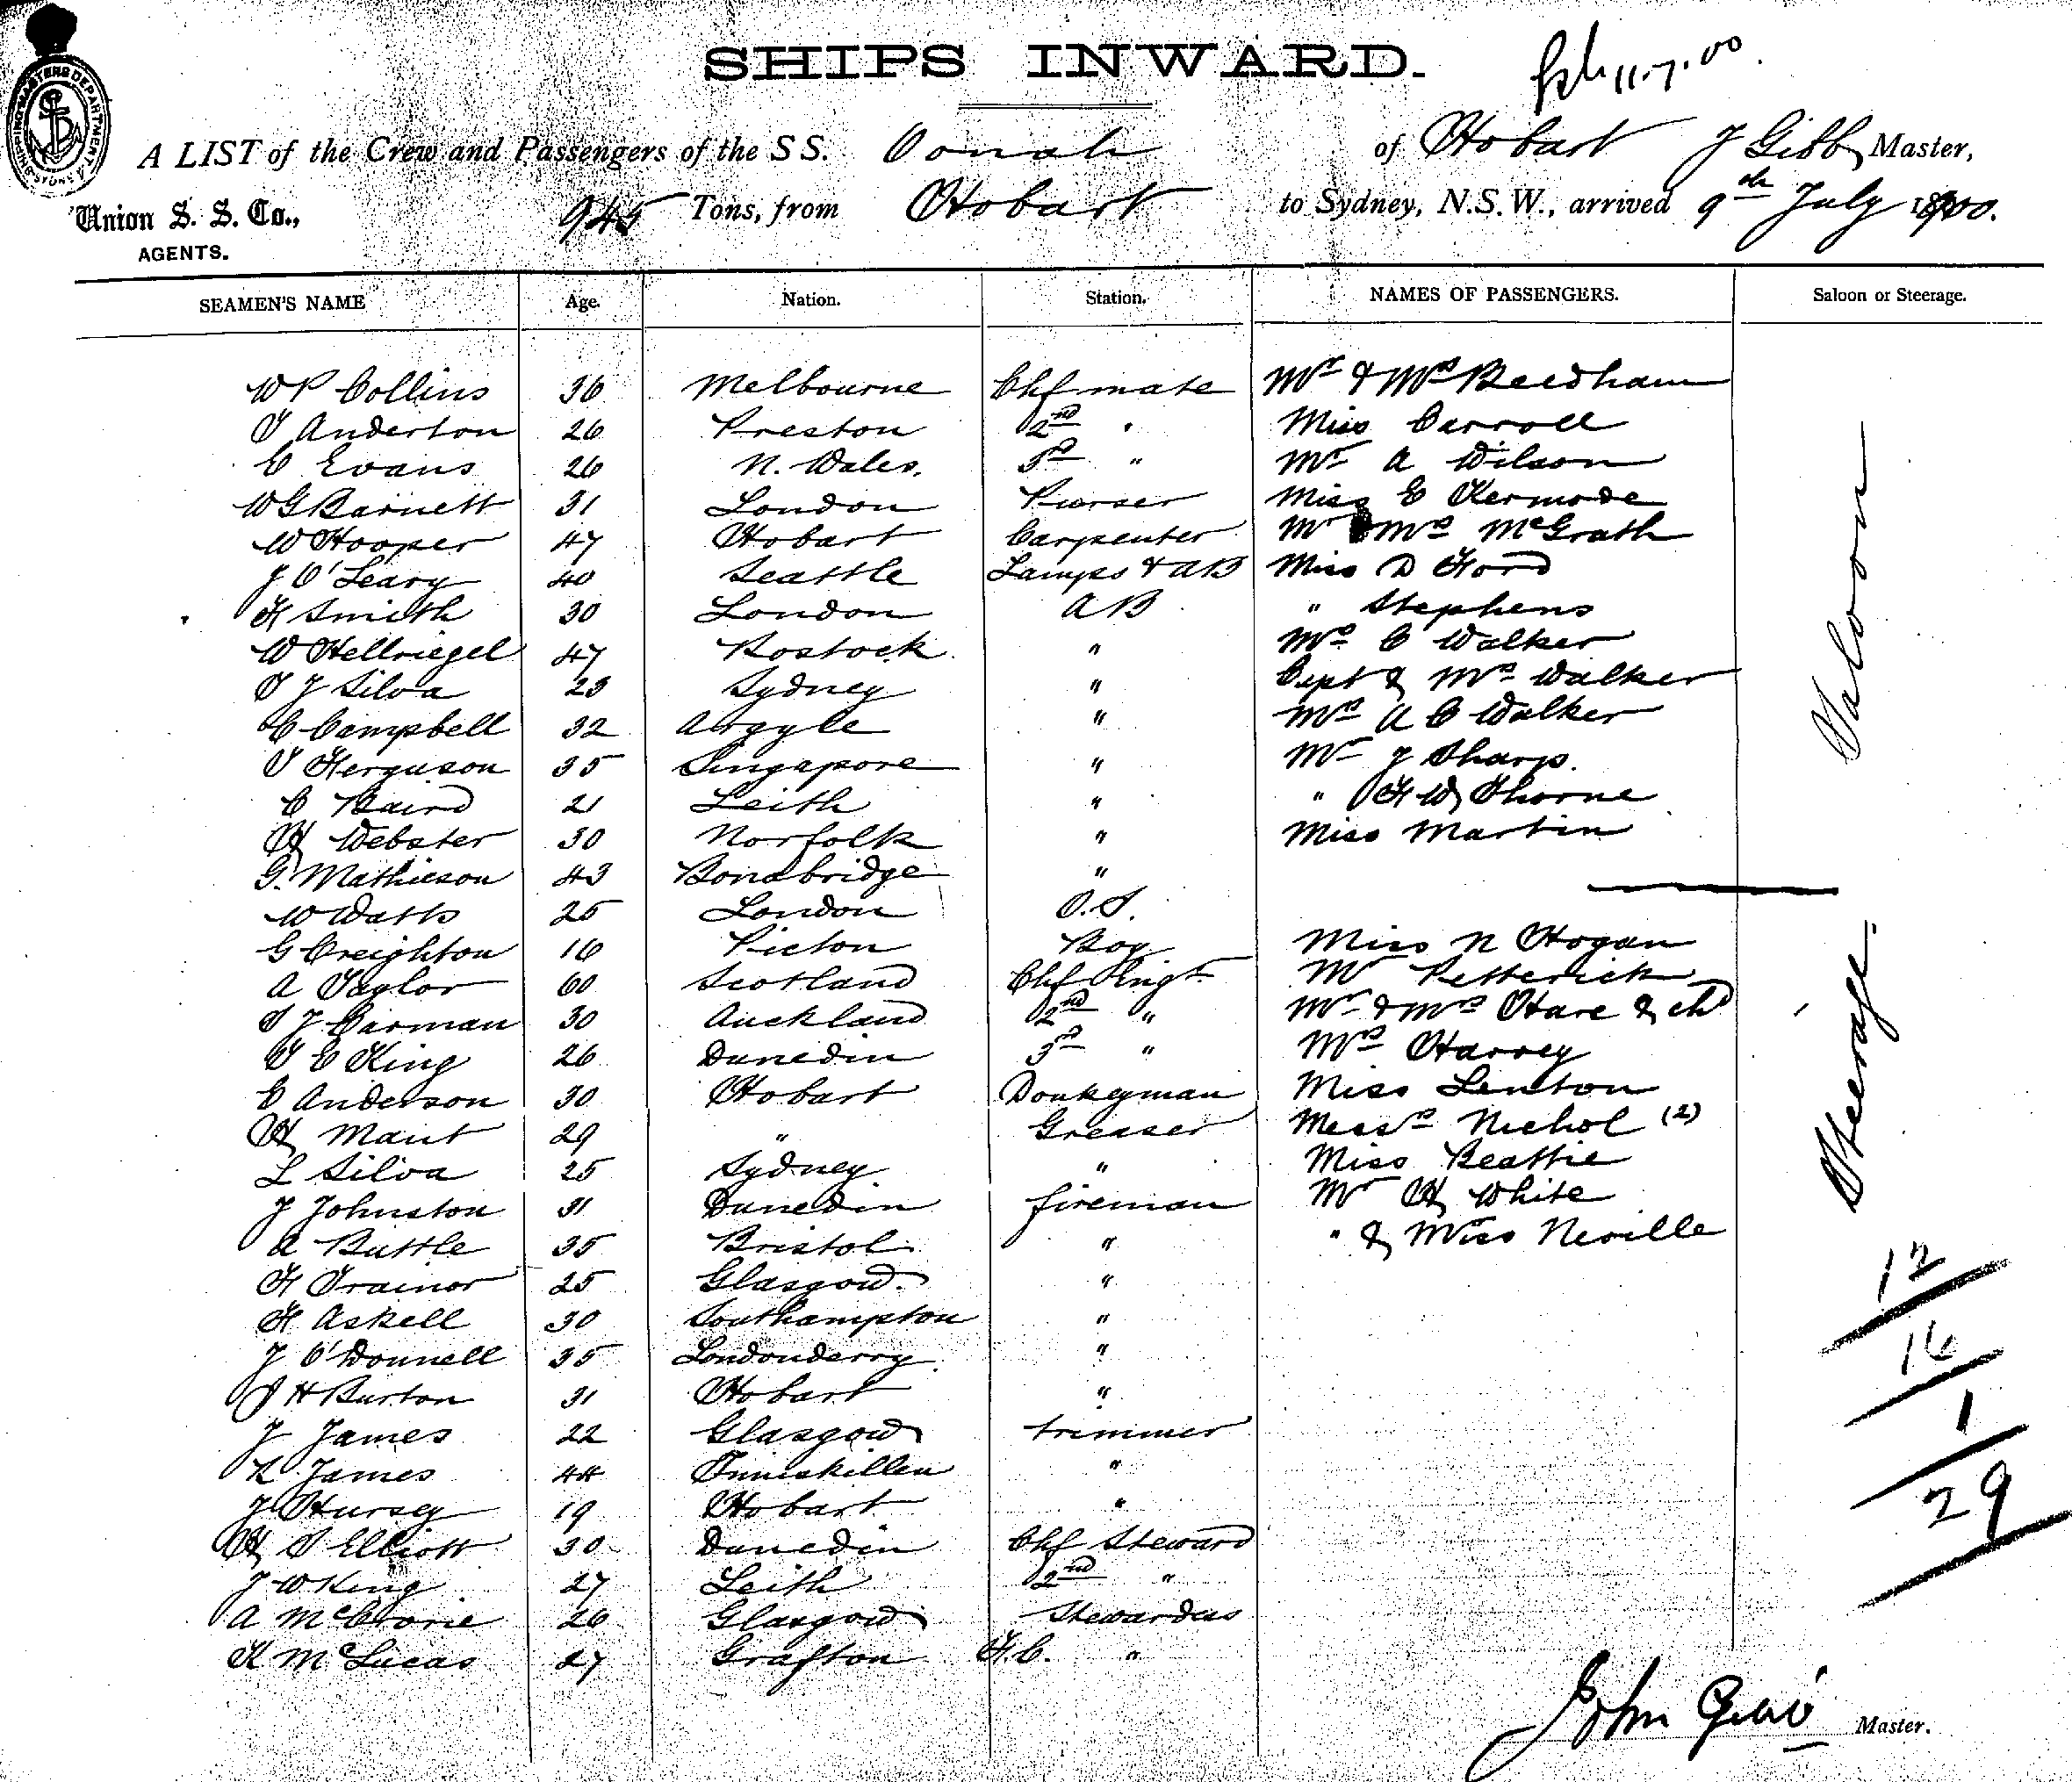 SHIPS INWARD.
11.7.00.
SHIPPING MASTERS DEPARTMENT
SYDNEY
A LIST of the Crew and Passengers of the S S. Oonah of Hobart J Gibb, Master,
Union S. S. Co., 945 Tons, from Hobart to Sydney, N.S.W., arrived 9th July 1900.
AGENTS.
SEAMEN'S NAME Age. Nation. Station. NAMES OF PASSENGERS. Saloon or Steerage.
W P Collins 36 Melbourne Chf mate Mr & Mrs Beedham
T Anderton 26 Preston 2nd " Miss Carroll
C Evans 26 N. Wales. 3rd " Mr A Wilson
W G Barnett 31 London Purser Miss E Kermode
W Hooper 47 Hobart Carpenter Mr & Mrs McGrath
J O'Leary 40 Seattle Lamps & AB Miss D Ford
F Smith 30 London AB " Stephens
W Hellriegel 47 Rostock " Mrs C Walker
T J Silva 23 Sydney " Capt & Mrs Walker
C Campbell 32 Argyle " Mrs A C Walker
T Ferguson 35 Singapore " Mr J Sharp.
C Baird 21 Leith " " F W Thorne
H Webster 30 Norfolk " Miss Martin
Saloon
G. Mathieson 43 Bonabridge "
W Watts 25 London O.S.
G Creighton 16 Picton Boy Miss N Hogan
A Taylor 60 Scotland Chf Engr Mr Petterick
T J Carman 30 Auckland 2nd " Mr & Mrs Hare & chd
T E King 26 Dunedin 3rd " Mrs Harvey
E Anderson 30 Hobart Donkeyman Miss Lenton
H Mant 29 " Greaser Messrs Nichol (2)
L Silva 25 Sydney " Miss Beattie
J Johnston 31 Dunedin fireman Mr H White
A Buttle 35 Bristol " " & Miss Neville
Steerage
F Trainor 25 Glasgow "
F Askell 30 Southampton "
J O'Donnell 35 Londonderry "
J H Burton 31 Hobart "
J James 22 Glasgow trimmer
R James 44 Inniskillen "
J Hursey 19 Hobart "
H S Elliott 30 Dunedin Chf Steward
J W King 27 Leith 2nd "
A McCrorie 26 Glasgow Stewardess
K McLucas 27 Grafton F.C. "
12
16
1
29
John Gibb Master.